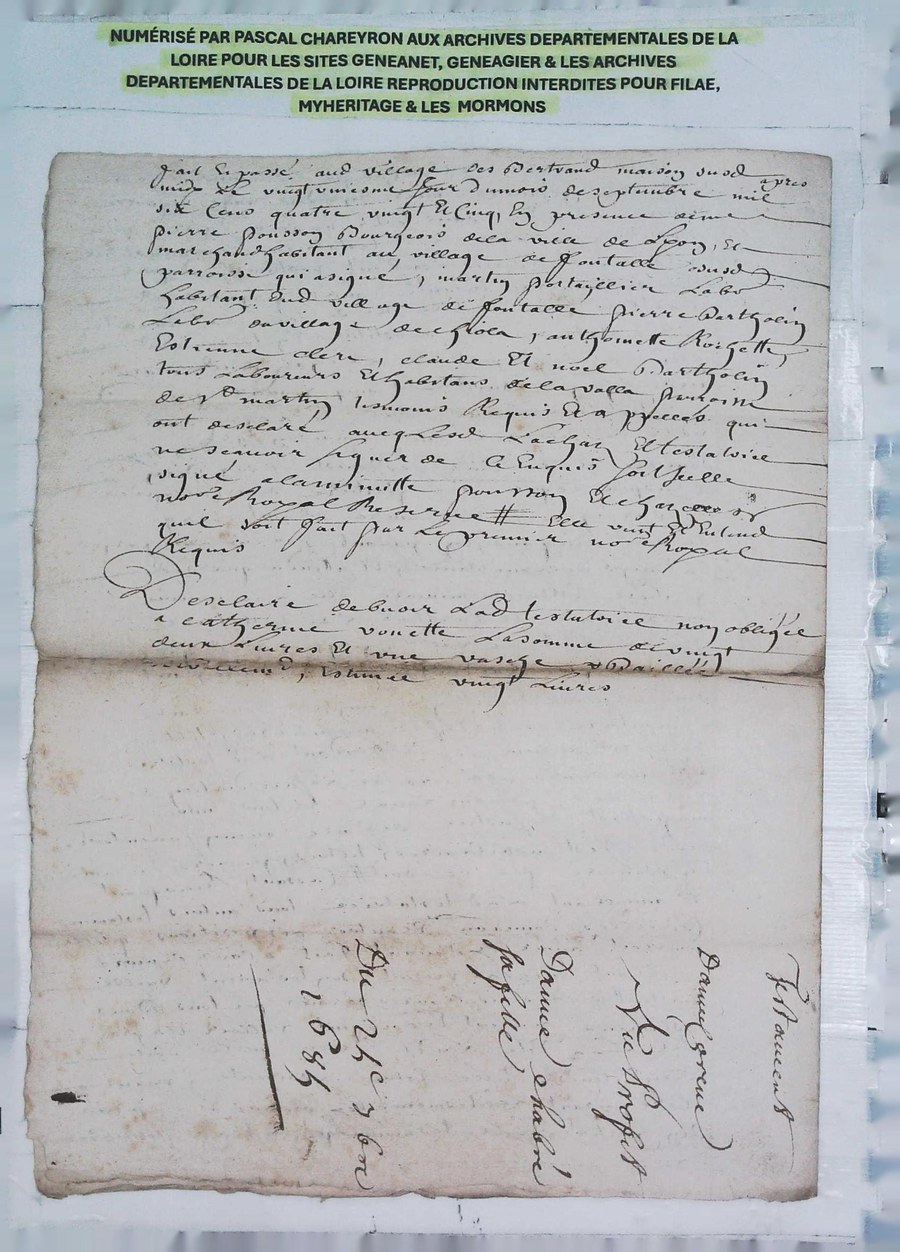 NUMÉRISÉ PAR PASCAL CHAREYRON AUX ARCHIVES DEPARTEMENTALES DE LA
LOIRE POUR LES SITES GENEANET, GENEAGIER & LES ARCHIVES
DEPARTEMENTALES DE LA LOIRE REPRODUCTION INTERDITES POUR FILAE,
MYHERITAGE & LES MORMONS
fait et passé aud village des Bertrand maison susd apres
midy le vingt uniesme jour du mois de septembre mil
six cens quatre vingt et cinq, en presence de
pierre ponsson Bourgeois de la ville de Lyon, et
marchand habitant au village de fontalle susd
parroisse qui a signé, martin Labr
habitant dud village de fontalle pierre Bartholin
Labr du village de, anthoinette Rochette
Estienne clerc, claude et noel Bartholin
tous Laboureurs et habitans de la valla parroisse
de st martin tesmoins Requis et appellés qui
ont desclaré avecq lesd et testatrice
ne scavoir signer de ce enquis soit selle
signé a la minutte ponsson et
nore Royal Reserve # Elle veut et Entend
quil soit fait par le premier nore Royal
Requis
Desclaire debvoir Lad testatrice non obligée
a catherine vouette La somme de vingt
deux Livres et une vasche
estimée vingt Livres
Testament
Danne
Danne chabré
sa fille
Du 21e 7bre
1685